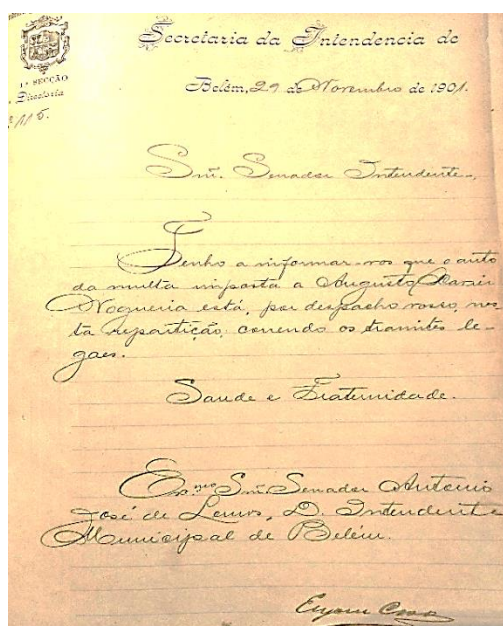 Secretaria da Intendencia de
1ª SECÇÃO
Directoria
Belém, 29 de Novembro de 1901.
Snr. Senador Intendente,
Tenho a informar-vos que o auto
da multa imposta a Augusto
Nogueria está, por despacho vosso, nes
ta repartição, correndo os tramites le-
gaes.
Saude e Fraternidade.
Exmo Snr. Senador Antonio
José de Lemos, D. Intendente
Municipal de Belém.